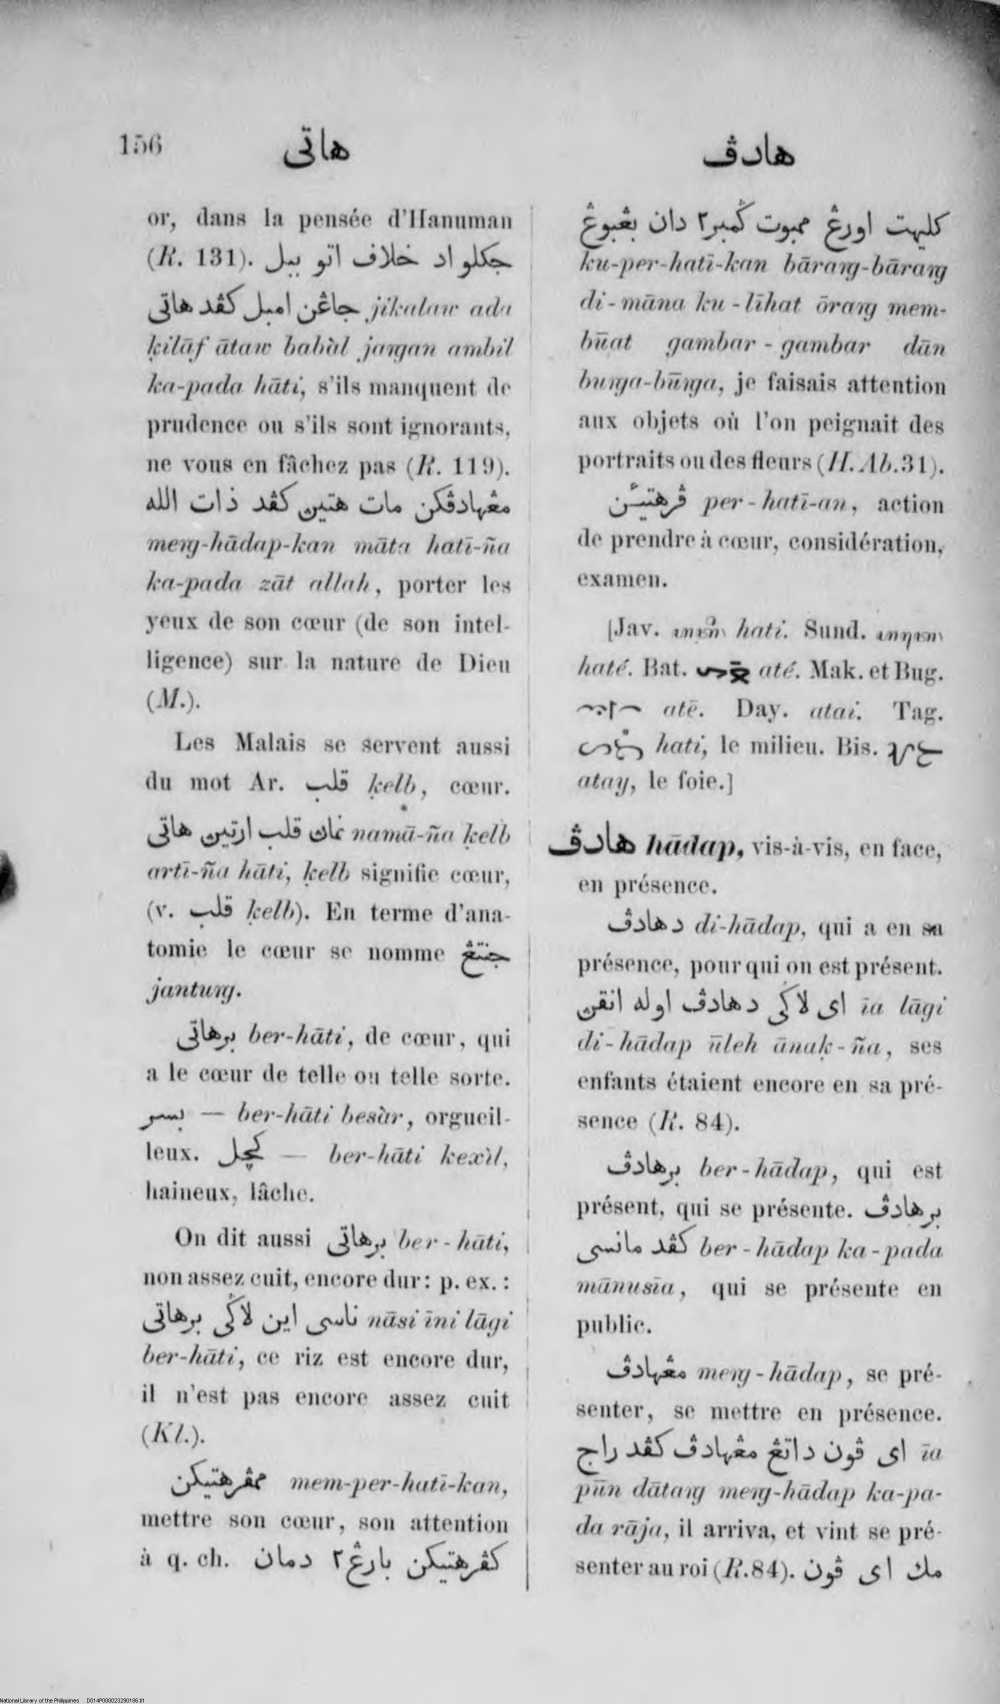 156
هاتی
هادڤ
or, dans la pensée d'Hanuman
(R. 131). جکلو اد خلاف اتو ببل
جاڠن امبل کڤد هاتی jikalaw ada
ḳilāf ātaw babàl jaṅgan ambil
ka-pada hāti, s'ils manquent de
prudence ou s'ils sont ignorants,
ne vous en fâchez pas (R. 119).
مڠهادڤکن مات هتین کڤد ذات الله
meṅg-hādap-kan māta hatī-ña
ka-pada zāt allah, porter les
yeux de son cœur (de son intel-
ligence) sur la nature de Dieu
(M.).
Les Malais se servent aussi
du mot Ar. قلب ḳelb, cœur.
نمان قلب ارتین هاتی namā-ña ḳelb
artī-ña hāti, ḳelb signifie cœur,
(v. قلب ḳelb). En terme d'ana-
tomie le cœur se nomme جنتڠ
jantuṅg.
برهاتی ber-hāti, de cœur, qui
a le cœur de telle ou telle sorte.
بسر — ber-hāti besàr, orgueil-
leux. کچل — ber-hāti kexìl,
haineux, lâche.
On dit aussi برهاتی ber-hāti,
non assez cuit, encore dur: p. ex.:
ناسی این لاڬی برهاتی nāsi īni lāgi
ber-hāti, ce riz est encore dur,
il n'est pas encore assez cuit
(Kl.).
ممڤرهتیکن mem-per-hatī-kan,
mettre son cœur, son attention
à q. ch. کڤرهتیکن بارڠ٢ دمان
کلیهت اورڠ ممبوت ڬمبر٢ دان بڠبوڠ
ku-per-hatī-kan bāraṅg-bāraṅg
di-māna ku-līhat ōraṅg mem-
būat gambar-gambar dān
buṅga-būṅga, je faisais attention
aux objets où l'on peignait des
portraits ou des fleurs (H. Ab. 31).
ڤرهتیئن per-hatī-an, action
de prendre à cœur, considération,
examen.
[Jav. hati. Sund.
haté. Bat. até. Mak. et Bug.
atē. Day. atai. Tag.
hati, le milieu. Bis.
atay, le foie.]
هادڤ hādap, vis-à-vis, en face,
en présence.
دهادڤ di-hādap, qui a en sa
présence, pour qui on est présent.
ای لاڬی دهادڤ اوله انقن īa lāgi
di-hādap ūleh ānaḳ-ña, ses
enfants étaient encore en sa pré-
sence (R. 84).
برهادڤ ber-hādap, qui est
présent, qui se présente. برهادڤ
کڤد مانسی ber-hādap ka-pada
mānusīa, qui se présente en
public.
مڠهادڤ meṅg-hādap, se pré-
senter, se mettre en présence.
ای ڤون داتڠ مڠهادڤ کڤد راج īa
pūn dātaṅg meṅg-hādap ka-pa-
da rāja, il arriva, et vint se pré-
senter au roi (R. 84). مك ای ڤون
National Library of the Philippines